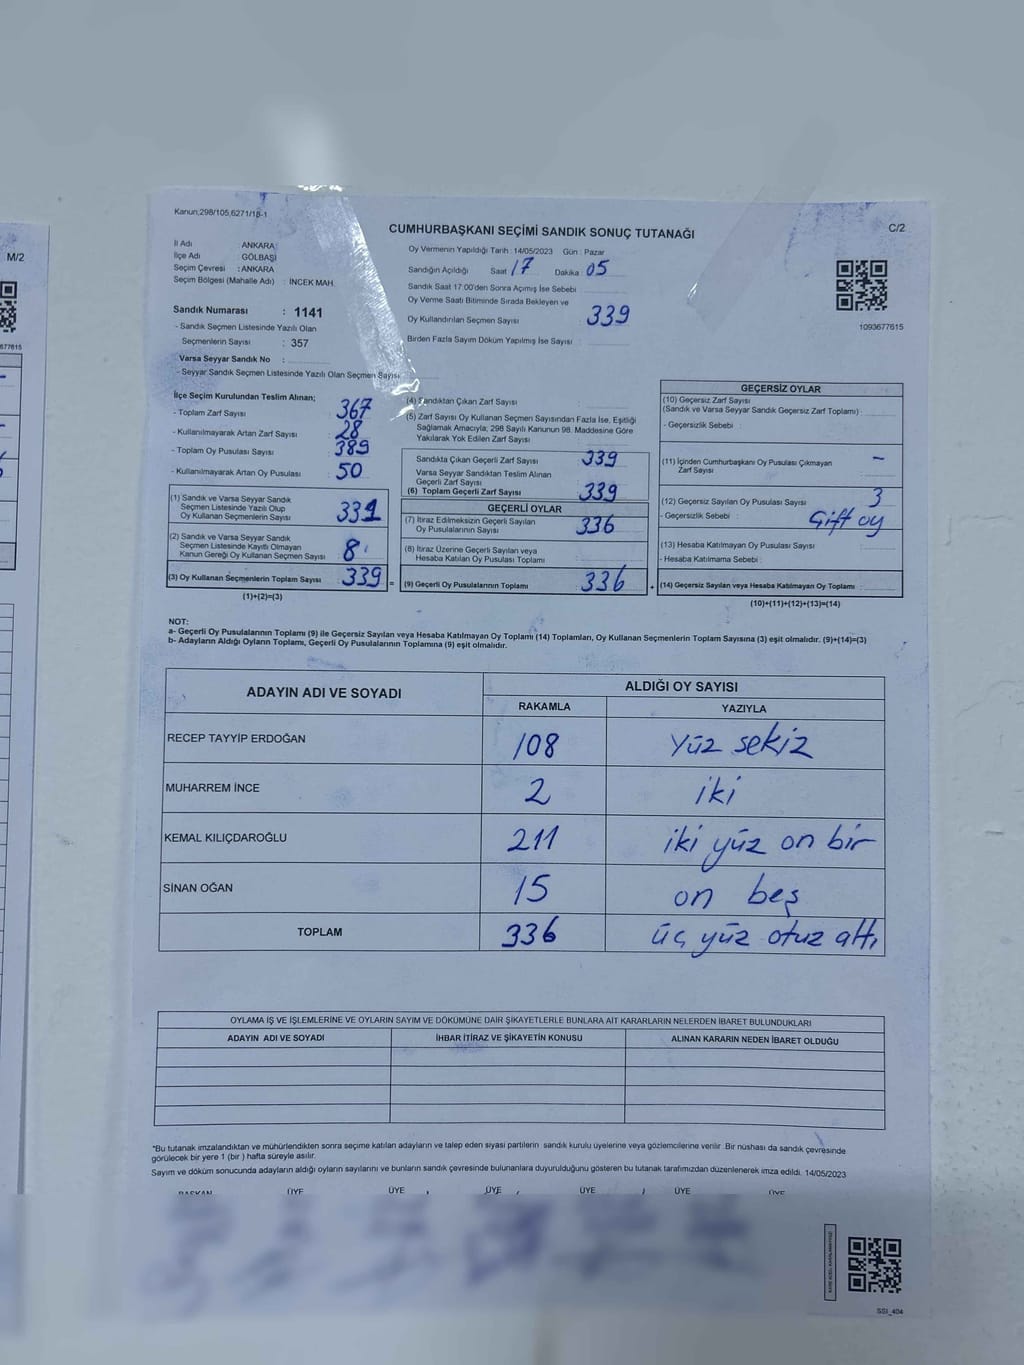 Kanun;298/105,6271/18-1
CUMHURBAŞKANI SEÇİMİ SANDIK SONUÇ TUTANAĞI
C/2
M/2
İl Adı ANKARA
İlçe Adı GÖLBAŞI
Seçim Çevresi : ANKARA
Seçim Bölgesi (Mahalle Adı) : İNCEK MAH.
Sandık Numarası : 1141
- Sandık Seçmen Listesinde Yazılı Olan
Seçmenlerin Sayısı : 357
Varsa Seyyar Sandık No :
- Seyyar Sandık Seçmen Listesinde Yazılı Olan Seçmen Sayısı
Oy Vermenin Yapıldığı Tarih : 14/05/2023 Gün : Pazar
Sandığın Açıldığı Saat 17 Dakika 05
Sandık Saat 17:00'den Sonra Açımış İse Sebebi
Oy Verme Saati Bitiminde Sırada Bekleyen ve
Oy Kullandırılan Seçmen Sayısı 339
Birden Fazla Sayım Döküm Yapılmış İse Sayısı :
1093677615
677615
İlçe Seçim Kurulundan Teslim Alınan;
- Toplam Zarf Sayısı 367
- Kullanılmayarak Artan Zarf Sayısı 28
- Toplam Oy Pusulası Sayısı 389
- Kullanılmayarak Artan Oy Pusulası 50
(1) Sandık ve Varsa Seyyar Sandık
Seçmen Listesinde Yazılı Olup
Oy Kullanan Seçmenlerin Sayısı 331
(2) Sandık ve Varsa Seyyar Sandık
Seçmen Listesinde Kayıtlı Olmayan
Kanun Gereği Oy Kullanan Seçmen Sayısı 8
(3) Oy Kullanan Seçmenlerin Toplam Sayısı 339 =
(1)+(2)=(3)
(4) Sandıktan Çıkan Zarf Sayısı
(5) Zarf Sayısı Oy Kullanan Seçmen Sayısından Fazla İse, Eşitliği
Sağlamak Amacıyla; 298 Sayılı Kanunun 98. Maddesine Göre
Yakılarak Yok Edilen Zarf Sayısı
Sandıkta Çıkan Geçerli Zarf Sayısı 339
Varsa Seyyar Sandıktan Teslim Alınan
Geçerli Zarf Sayısı
(6) Toplam Geçerli Zarf Sayısı 339
GEÇERLİ OYLAR
(7) İtiraz Edilmeksizin Geçerli Sayılan
Oy Pusulalarının Sayısı 336
(8) İtiraz Üzerine Geçerli Sayılan veya
Hesaba Katılan Oy Pusulası Toplamı
(9) Geçerli Oy Pusulalarının Toplamı 336 +
GEÇERSİZ OYLAR
(10) Geçersiz Zarf Sayısı
(Sandık ve Varsa Seyyar Sandık Geçersiz Zarf Toplamı) :
- Geçersizlik Sebebi :
(11) İçinden Cumhurbaşkanı Oy Pusulası Çıkmayan
Zarf Sayısı -
(12) Geçersiz Sayılan Oy Pusulası Sayısı 3
- Geçersizlik Sebebi : Çift oy
(13) Hesaba Katılmayan Oy Pusulası Sayısı
- Hesaba Katılmama Sebebi :
(14) Geçersiz Sayılan veya Hesaba Katılmayan Oy Toplamı :
(10)+(11)+(12)+(13)=(14)
NOT:
a- Geçerli Oy Pusulalarının Toplamı (9) ile Geçersiz Sayılan veya Hesaba Katılmayan Oy Toplamı (14) Toplamları, Oy Kullanan Seçmenlerin Toplam Sayısına (3) eşit olmalıdır. (9)+(14)=(3)
b- Adayların Aldığı Oyların Toplamı, Geçerli Oy Pusulalarının Toplamına (9) eşit olmalıdır.
ADAYIN ADI VE SOYADI ALDIĞI OY SAYISI
RAKAMLA YAZIYLA
RECEP TAYYİP ERDOĞAN 108 Yüz sekiz
MUHARREM İNCE 2 iki
KEMAL KILIÇDAROĞLU 211 iki yüz on bir
SİNAN OĞAN 15 on beş
TOPLAM 336 üç yüz otuz altı
OYLAMA İŞ VE İŞLEMLERİNE VE OYLARIN SAYIM VE DÖKÜMÜNE DAİR ŞİKAYETLERLE BUNLARA AİT KARARLARIN NELERDEN İBARET BULUNDUKLARI
ADAYIN ADI VE SOYADI İHBAR İTİRAZ VE ŞİKAYETİN KONUSU ALINAN KARARIN NEDEN İBARET OLDUĞU
*Bu tutanak imzalandıktan ve mühürlendikten sonra seçime katılan adayların ve talep eden siyasi partilerin sandık kurulu üyelerine veya gözlemcilerine verilir. Bir nüshası da sandık çevresinde
görülecek bir yere 1 (bir) hafta süreyle asılır.
Sayım ve döküm sonucunda adayların aldığı oyların sayılarını ve bunların sandık çevresinde bulunanlara duyurulduğunu gösteren bu tutanak tarafımızdan düzenlenerek imza edildi. 14/05/2023
BAŞKAN ÜYE ÜYE ÜYE ÜYE ÜYE ÜYE
SSI_404